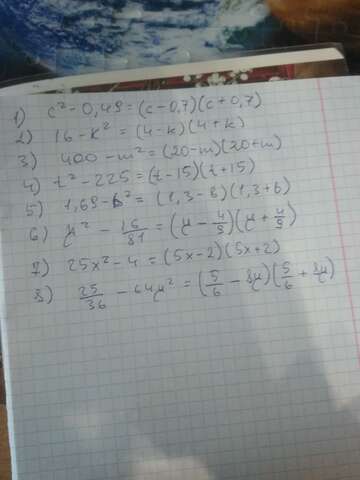 1) c² - 0,49 = (c - 0,7)(c + 0,7)
2) 16 - k² = (4 - k)(4 + k)
3) 400 - m² = (20 - m)(20 + m)
4) t² - 225 = (t - 15)(t + 15)
5) 1,69 - b² = (1,3 - b)(1,3 + b)
6) y² - 16/81 = (y - 4/9)(y + 4/9)
7) 25x² - 4 = (5x - 2)(5x + 2)
8) 25/36 - 64y² = (5/6 - 8y)(5/6 + 8y)